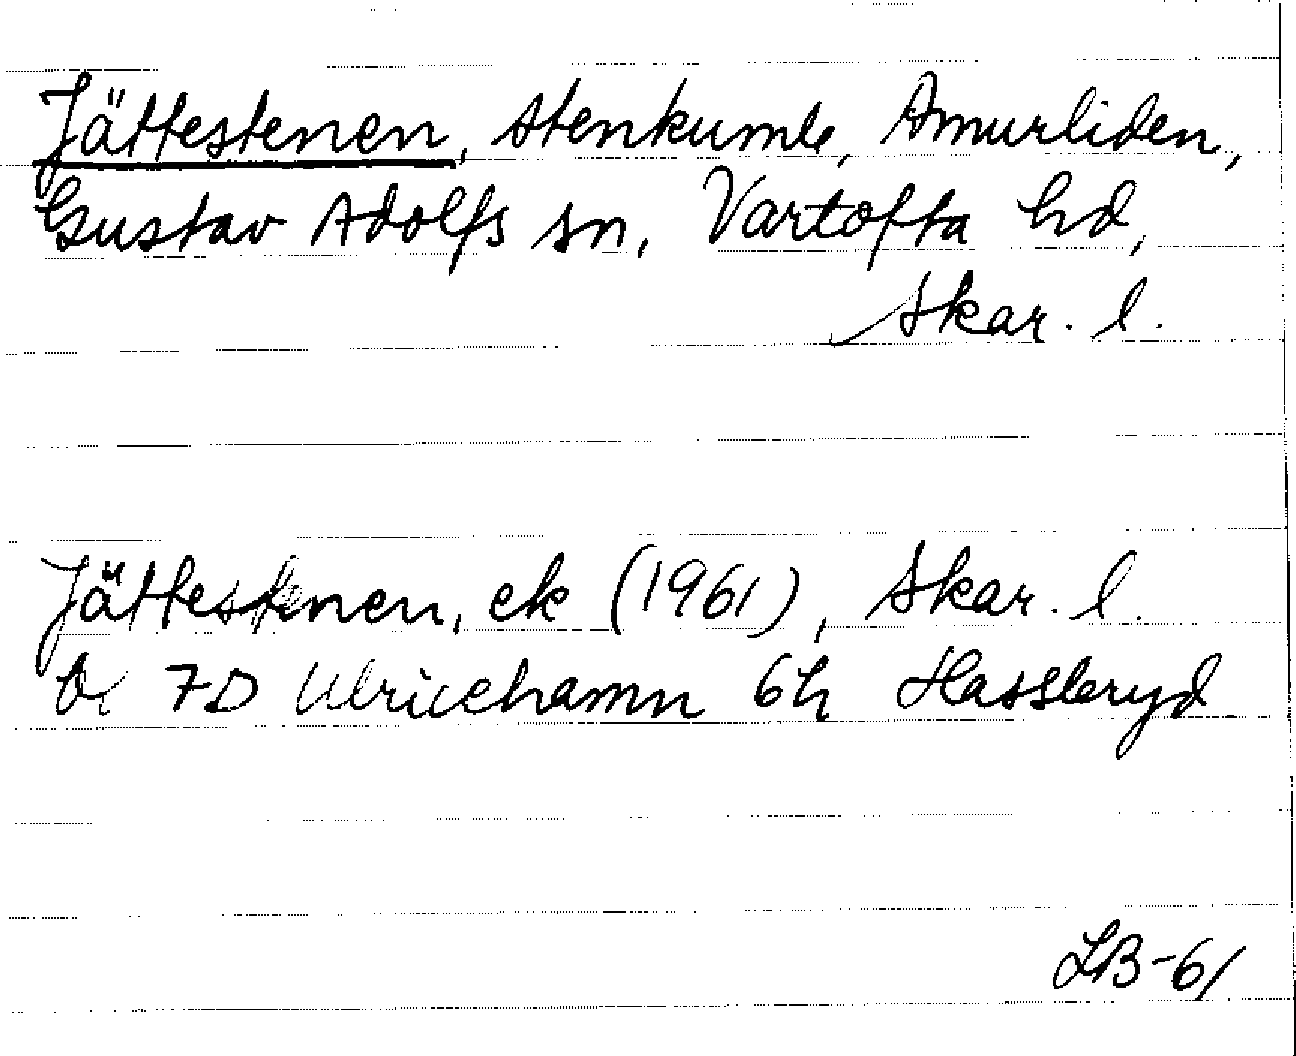 Jättestenen, stenkumle, Amurliden,
Gustav Adolfs sn, Vartofta hd,
Skar. l.
Jättestenen, ek (1961), Skar. l.
7D Ulricehamn 6h Hassleryd
LB-61